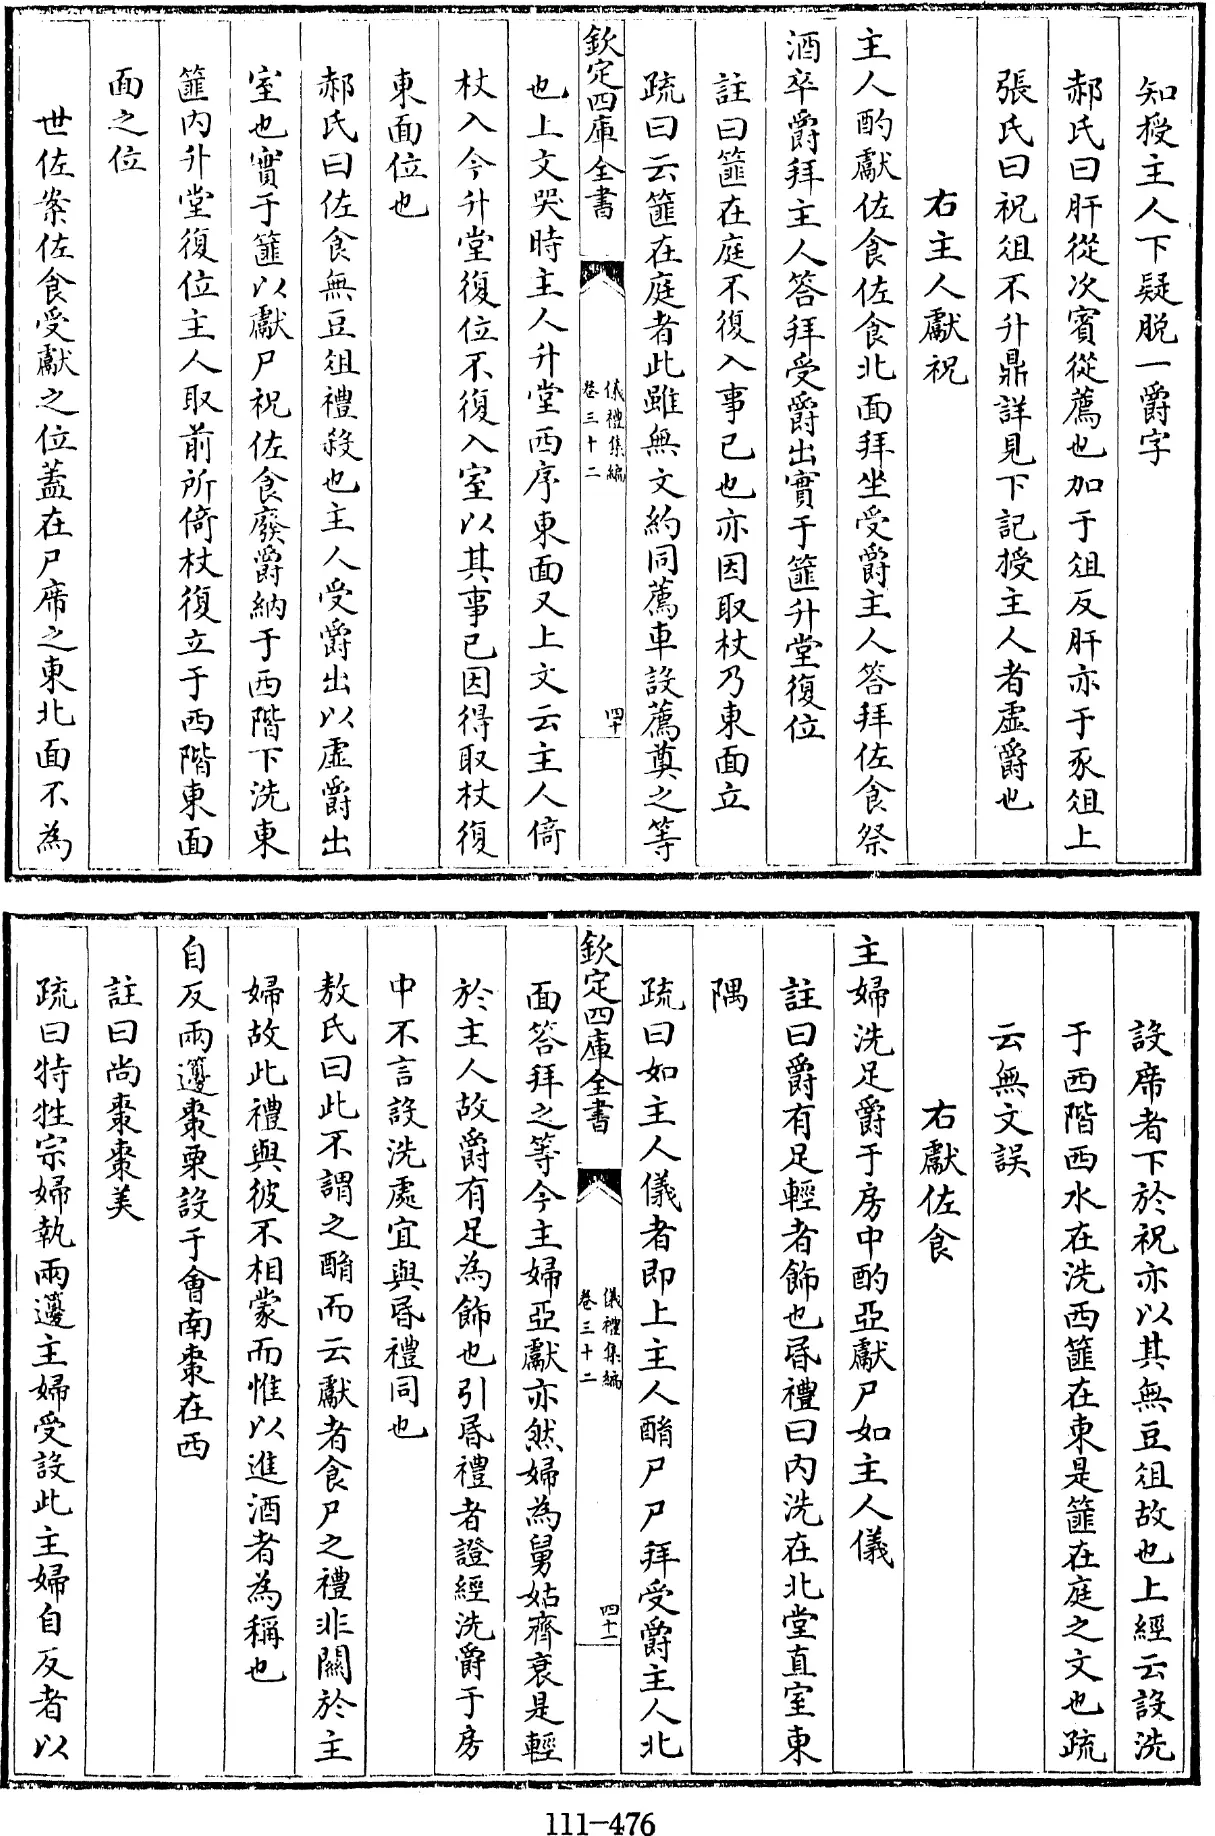 知授主人下疑脱一爵字
郝氏曰肝從次賓從薦也加于俎反肝亦于豕俎上
張氏曰祝俎不升鼎詳見下記授主人者虛爵也
右主人獻祝
主人酌獻佐食佐食北面拜坐受爵主人答拜佐食祭
酒卒爵拜主人答拜受爵出實于篚升堂復位
註曰篚在庭不復入事已也亦因取杖乃東面立
疏曰云篚在庭者此雖無文約同薦車設薦奠之等
欽定四庫全書
儀禮集編
卷三十二
四十
也上文哭時主人升堂西序東面又上文云主人倚
杖入今升堂復位不復入室以其事已因得取杖復
東面位也
郝氏曰佐食無豆俎禮殺也主人受爵出以虛爵出
室也實于篚以獻尸祝佐食廢爵納于西階下洗東
篚内升堂復位主人取前所倚杖復立于西階東面
面之位
世佐案佐食受獻之位蓋在尸席之東北面不為
設席者下於祝亦以其無豆俎故也上經云設洗
于西階西水在洗西篚在東是篚在庭之文也疏
云無文誤
右獻佐食
主婦洗足爵于房中酌亞獻尸如主人儀
註曰爵有足輕者飾也昏禮曰内洗在北堂直室東
隅
疏曰如主人儀者即上主人酳尸尸拜受爵主人北
欽定四庫全書
儀禮集編
卷三十二
四十一
面答拜之等今主婦亞獻亦然婦為舅姑齊衰是輕
於主人故爵有足為飾也引昏禮者證經洗爵于房
中不言設洗處宜與昏禮同也
敖氏曰此不謂之酳而云獻者食尸之禮非關於主
婦故此禮與彼不相蒙而惟以進酒者為稱也
自反兩籩棗栗設于會南棗在西
註曰尚棗棗美
疏曰特牲宗婦執兩籩主婦受設此主婦自反者以
111-476